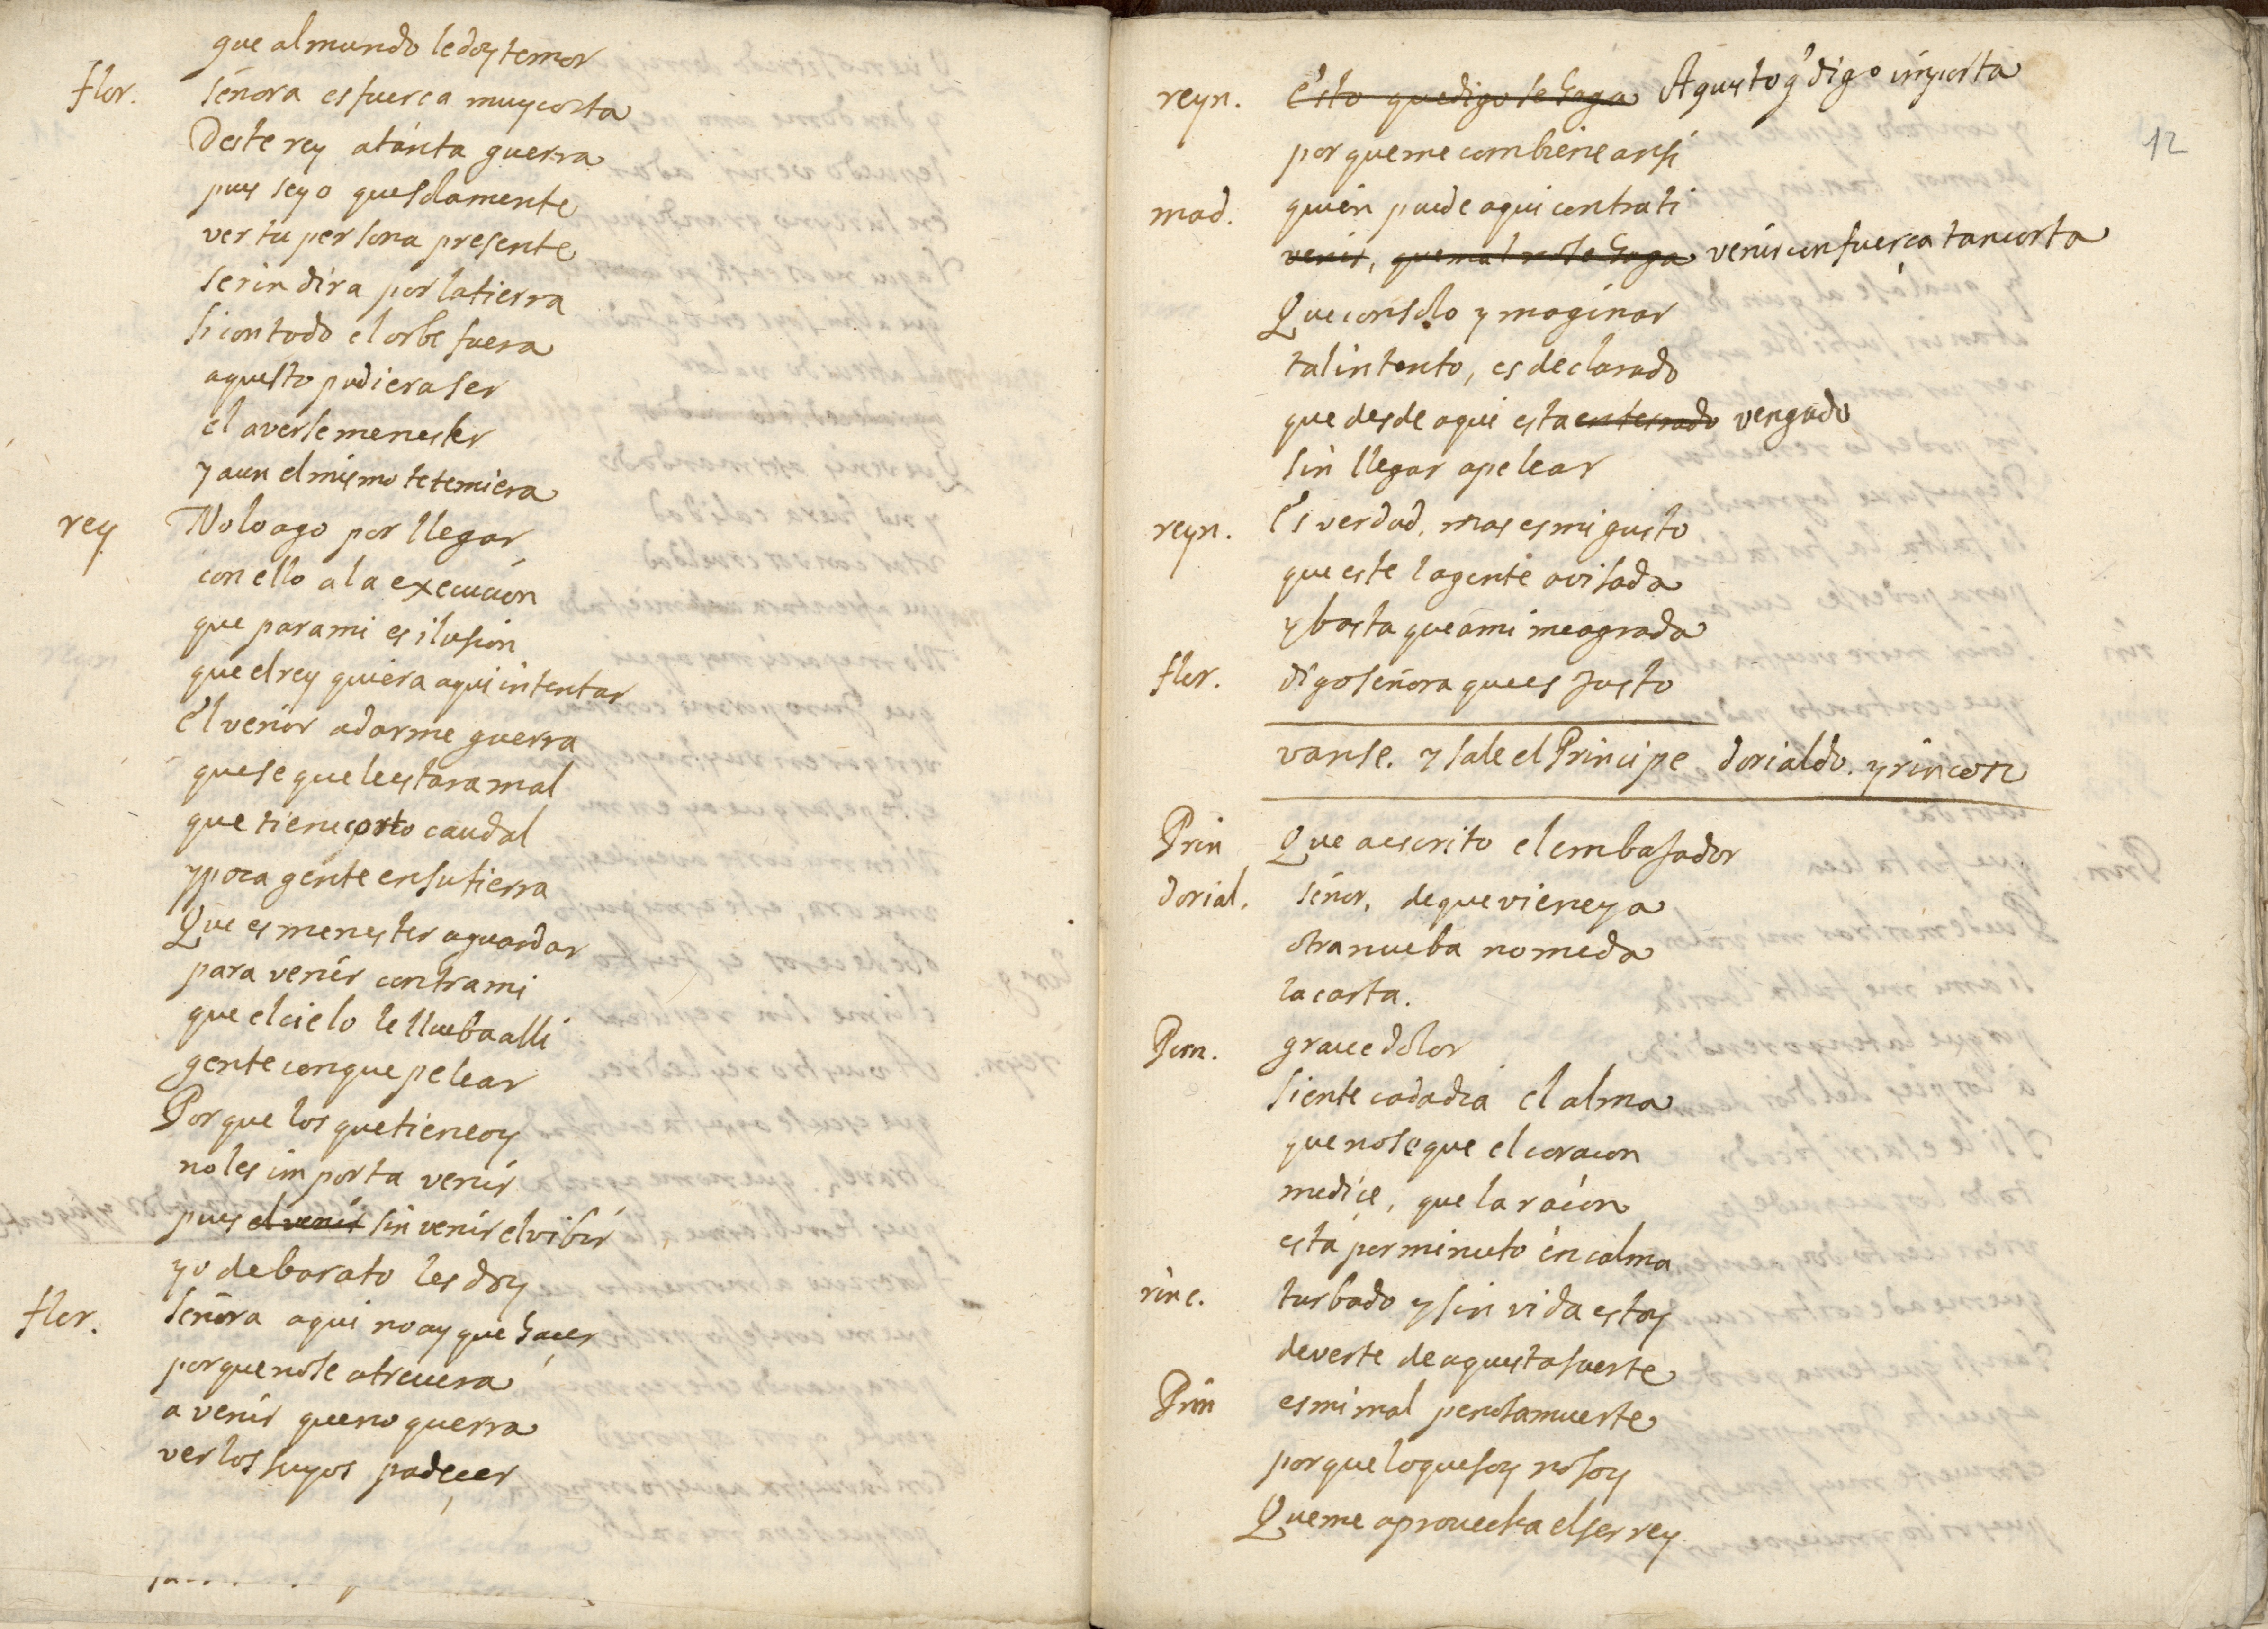 que al mundo le doy temor
flor. señora es fuerca muy corta
Deste rey a tanta guerra
pues se yo que solamente
ver tu persona presente
se rindira por la tierra
si con todo el orbe fuera
aquesto pudiera ser
el averse menester
y aun el mismo te temiera
rey No lo ago por llegar
con ello a la execucion
que para mi es ilusion
que el rey quiera aqui intentar
El venir a darme guerra
que se que le estara mal
que tiene corto caudal
y poca gente en su tierra
Que es menester aguardar
para venir contra mi
que el cielo le llueba alli
gente con que pelear
Porque los que tiene oy
no les importa venir
pues el venir sin venir el vibir
yo de barato les doy
flor. señora aqui no ay que hacer
porque no se atreuera
a venir que no querra
ver los suyos padecer
12
reyn. Esto que digo se haga Aquesto q digo importa
porque me combiene ansi
mad. quien puede aqui contra ti
venir, que mal no se haga venir con fuerca tan corta
Que con solo ymaginar
tal intento, es declarado
que desde aqui esta enterrado vengado
sin llegar a pelear
reyn. Es verdad. mas es mi gusto
que este la gente avisada
y basta que a mi me agrada
flor. digo señora que es Justo
vanse. y sale el Principe dorialdo. y rincon
Prin Que a escrito el embasador
dorial. señor. de que viene ya
otra nueba no me da
la carta.
Prin. graue dolor
siente cada dia el alma
que no se que el coracon
me dice, que la racon
está por minuto en calma
rinc. turbado y sin vida estoy
de verte de aquesta suerte
Prin es mi mal penosa muerte
porque lo que soy no soy
Que me aprouecha el ser rey